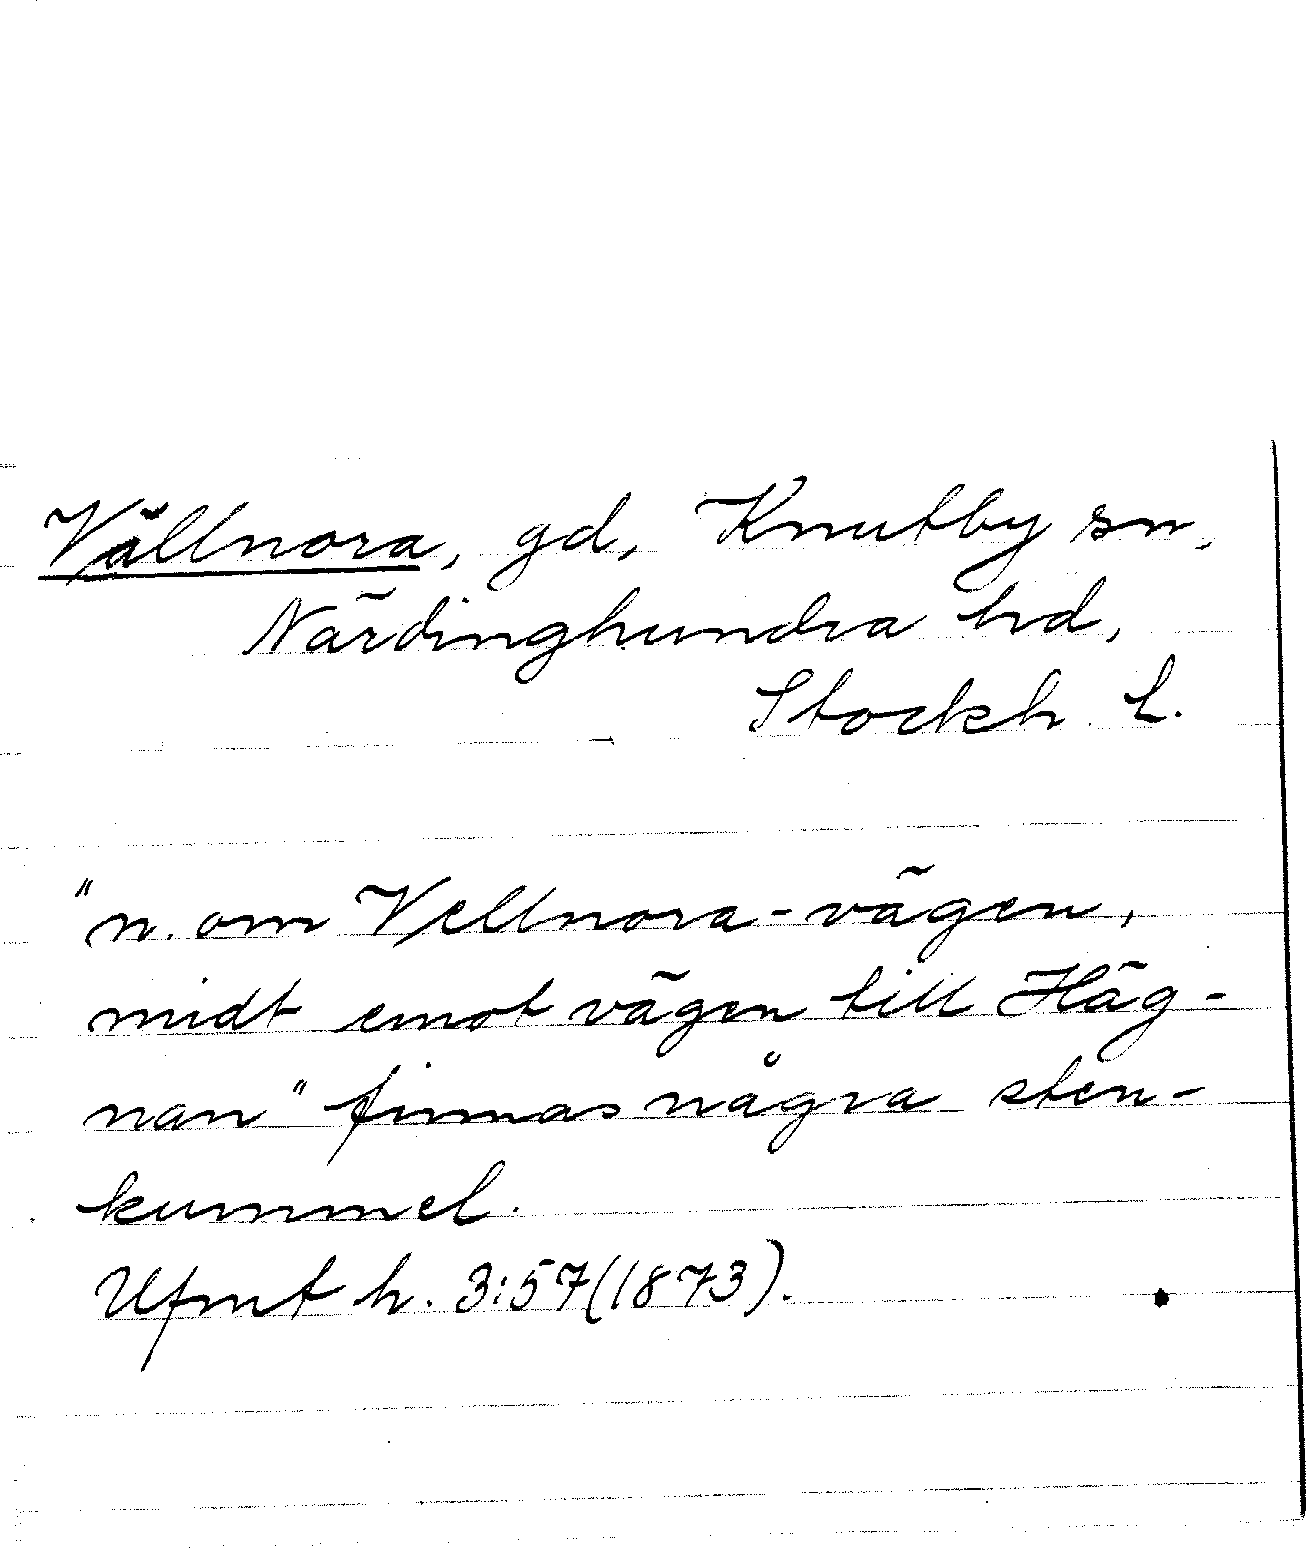 Vällnora, gd, Knutby sn,
Närdinghundra hd,
Stockh. L.
"n. om Vellnora-vägen,
midt emot vägen till Häg-
nan" finnas några sten-
kummel.
Ufmt h. 3:57 (1873).